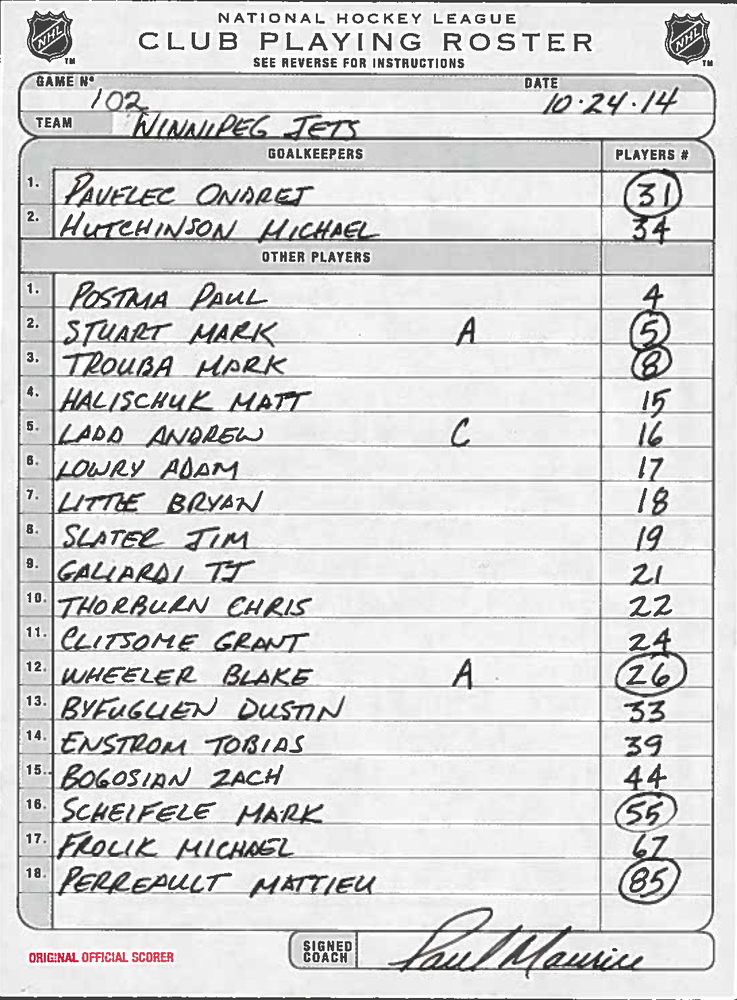 NATIONAL HOCKEY LEAGUE
NHL CLUB PLAYING ROSTER NHL
TM SEE REVERSE FOR INSTRUCTIONS TM
GAME Nº 102 DATE 10·24·14
TEAM WINNIPEG JETS
GOALKEEPERS PLAYERS #
1. PAVELEC ONDREJ 31
2. HUTCHINSON MICHAEL 34
OTHER PLAYERS
1. POSTMA PAUL 4
2. STUART MARK A 5
3. TROUBA MARK 8
4. HALISCHUK MATT 15
5. LADD ANDREW C 16
6. LOWRY ADAM 17
7. LITTLE BRYAN 18
8. SLATER JIM 19
9. GALIARDI TJ 21
10. THORBURN CHRIS 22
11. CLITSOME GRANT 24
12. WHEELER BLAKE A 26
13. BYFUGLIEN DUSTIN 33
14. ENSTROM TOBIAS 39
15. BOGOSIAN ZACH 44
16. SCHEIFELE MARK 55
17. FROLIK MICHAEL 67
18. PERREAULT MATTIEU 85
ORIGINAL OFFICIAL SCORER SIGNED COACH Paul Maurice